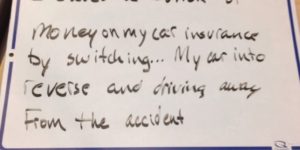 money on my car insurance
by switching... My car into
reverse and driving away
From the accident